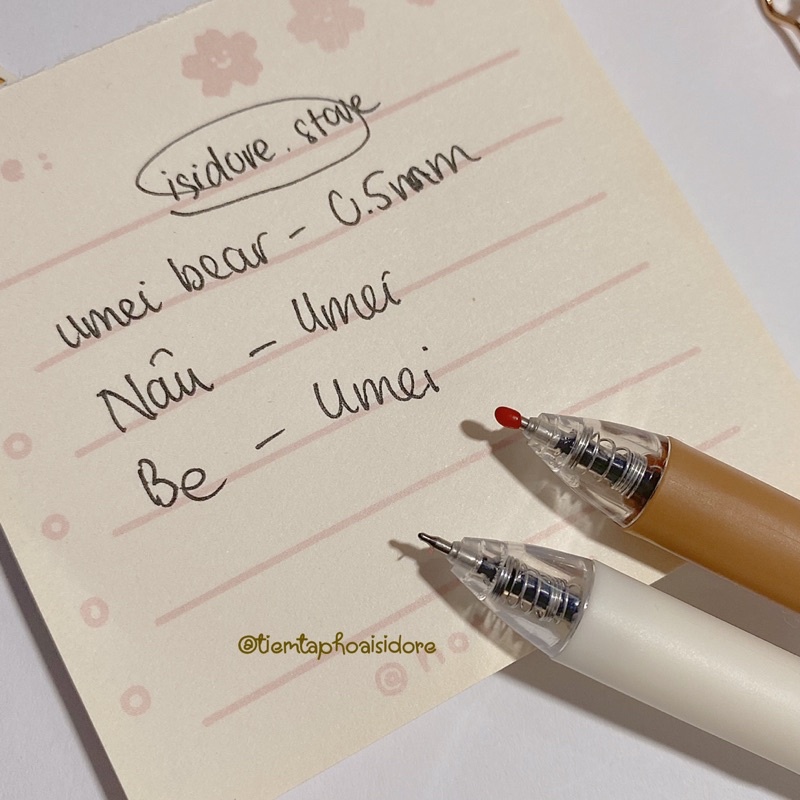 isidore.store
umei bear - 0.5mm
Nâu - Umei
Be - Umei
@tiemtaphoaisidore